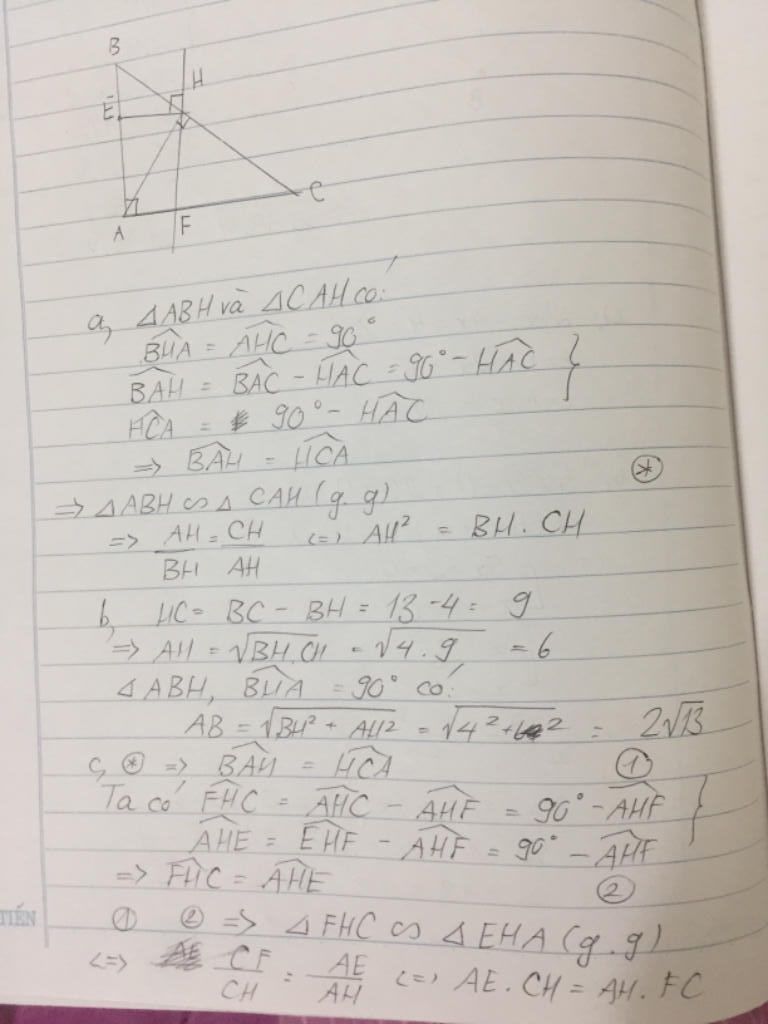 B
H
E
C
A
F
a, △ABH và △CAH có:
$\widehat{BHA} = \widehat{AHC} = 90°$
$\widehat{BAH} = \widehat{BAC} - \widehat{HAC} = 90° - \widehat{HAC}$ }
$\widehat{HCA} = 90° - \widehat{HAC}$
=> $\widehat{BAH} = \widehat{HCA}$ (*)
=> △ABH ∽ △CAH (g.g)
=> $\frac{AH}{BH} = \frac{CH}{AH}$ <=> AH² = BH.CH
b, HC = BC - BH = 13 - 4 = 9
=> AH = $\sqrt{BH.CH} = \sqrt{4.9}$ = 6
△ABH, $\widehat{BHA} = 90°$ có:
AB = $\sqrt{BH² + AH²} = \sqrt{4² + 6²}$ = 2$\sqrt{13}$
c, (*) => $\widehat{BAH} = \widehat{HCA}$ ①
Ta có $\widehat{FHC} = \widehat{AHC} - \widehat{AHF} = 90° - \widehat{AHF}$ }
$\widehat{AHE} = \widehat{EHF} - \widehat{AHF} = 90° - \widehat{AHF}$
=> $\widehat{FHC} = \widehat{AHE}$ ②
TIẾN
① ② => △FHC ∽ △EHA (g.g)
<=> $\frac{CF}{CH} = \frac{AE}{AH}$ <=> AE.CH = AH.FC